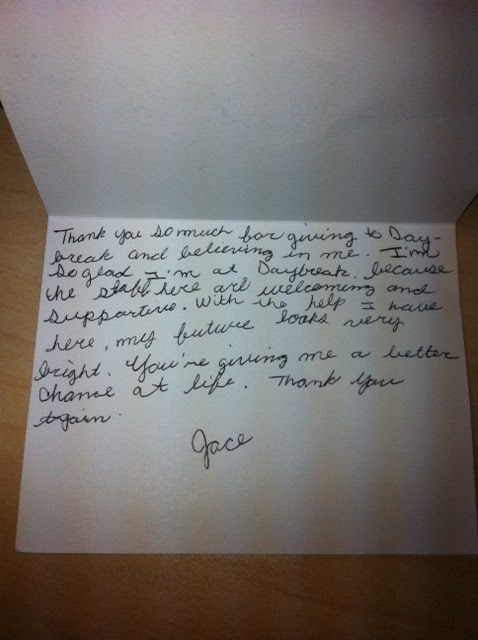 Thank you so much for giving to Day-
break and believing in me. I'm
so glad I'm at Daybreak, because
the staff here are welcoming and
supportive. With the help I have
here, my future looks very
bright. You're giving me a better
chance at life. Thank you
again.
Jace